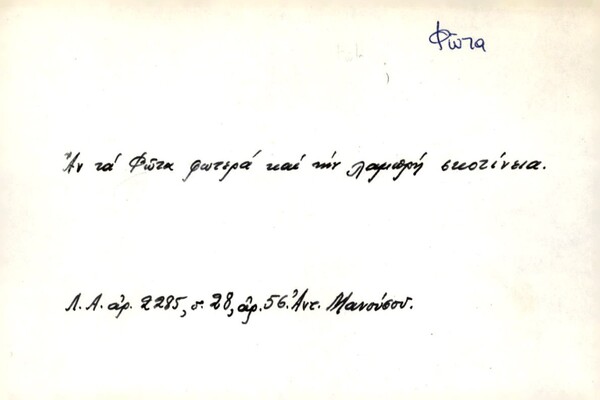 Φῶτα
Ἄν τά Φῶτα φωτερά καί τήν λαμπρή σκοτίνεια.
Λ.Α. ἀρ. 2285, σ. 28, ἀρ. 56. Ἀντ. Μανούσου.